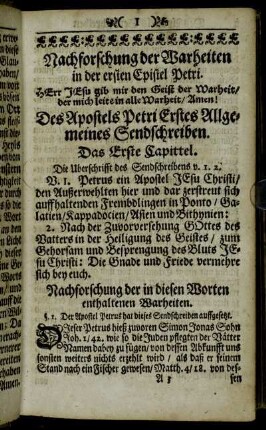 1
Nachforschung der Warheiten
in der ersten Epistel Petri.
HErr JEsu gib mir den Geist der Warheit/
der mich leite in alle Warheit/ Amen!
Des Apostels Petri Erstes Allge-
meines Sendschreiben.
Das Erste Capittel.
Die Uberschrifft des Sendschreibens v. 1. 2.
V. 1. Petrus ein Apostel JEsu Christi/
den Außerwehlten hier und dar zerstreut sich
auffhaltenden Frembdlingen in Ponto/ Ga-
latien/ Kappadocien/ Asien und Bithynien:
2. Nach der Zuvorversehung GOttes des
Vatters in der Heiligung des Geistes/ zum
Gehorsam und Besprengung des Bluts JE-
su Christi: Die Gnade und Friede vermehre
sich bey euch.
Nachforschung der in diesen Worten
enthaltenen Warheiten.
§. 1. Der Apostel Petrus hat dieses Sendschreiben auffgesetzt.
DIeser Petrus hieß zuvoren Simon Jonas Sohn
Joh. 1/42. wie so die Juden pflegten der Vätter
Namen dabey zu fügen/ von dessen Abkunfft uns
sonsten weiters nichts erzehlt wird/ als daß er seinem
Stand nach ein Fischer gewesen/ Matth. 4/18. von des-
A
sen